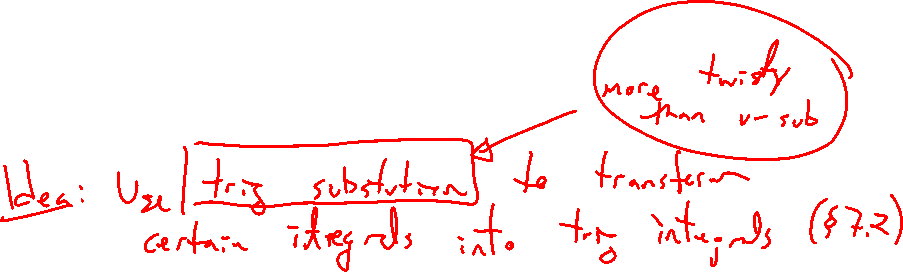 twisty
more
than u-sub
Idea: Use trig substution to transform
certain integrals into trig integrals (§7.2)